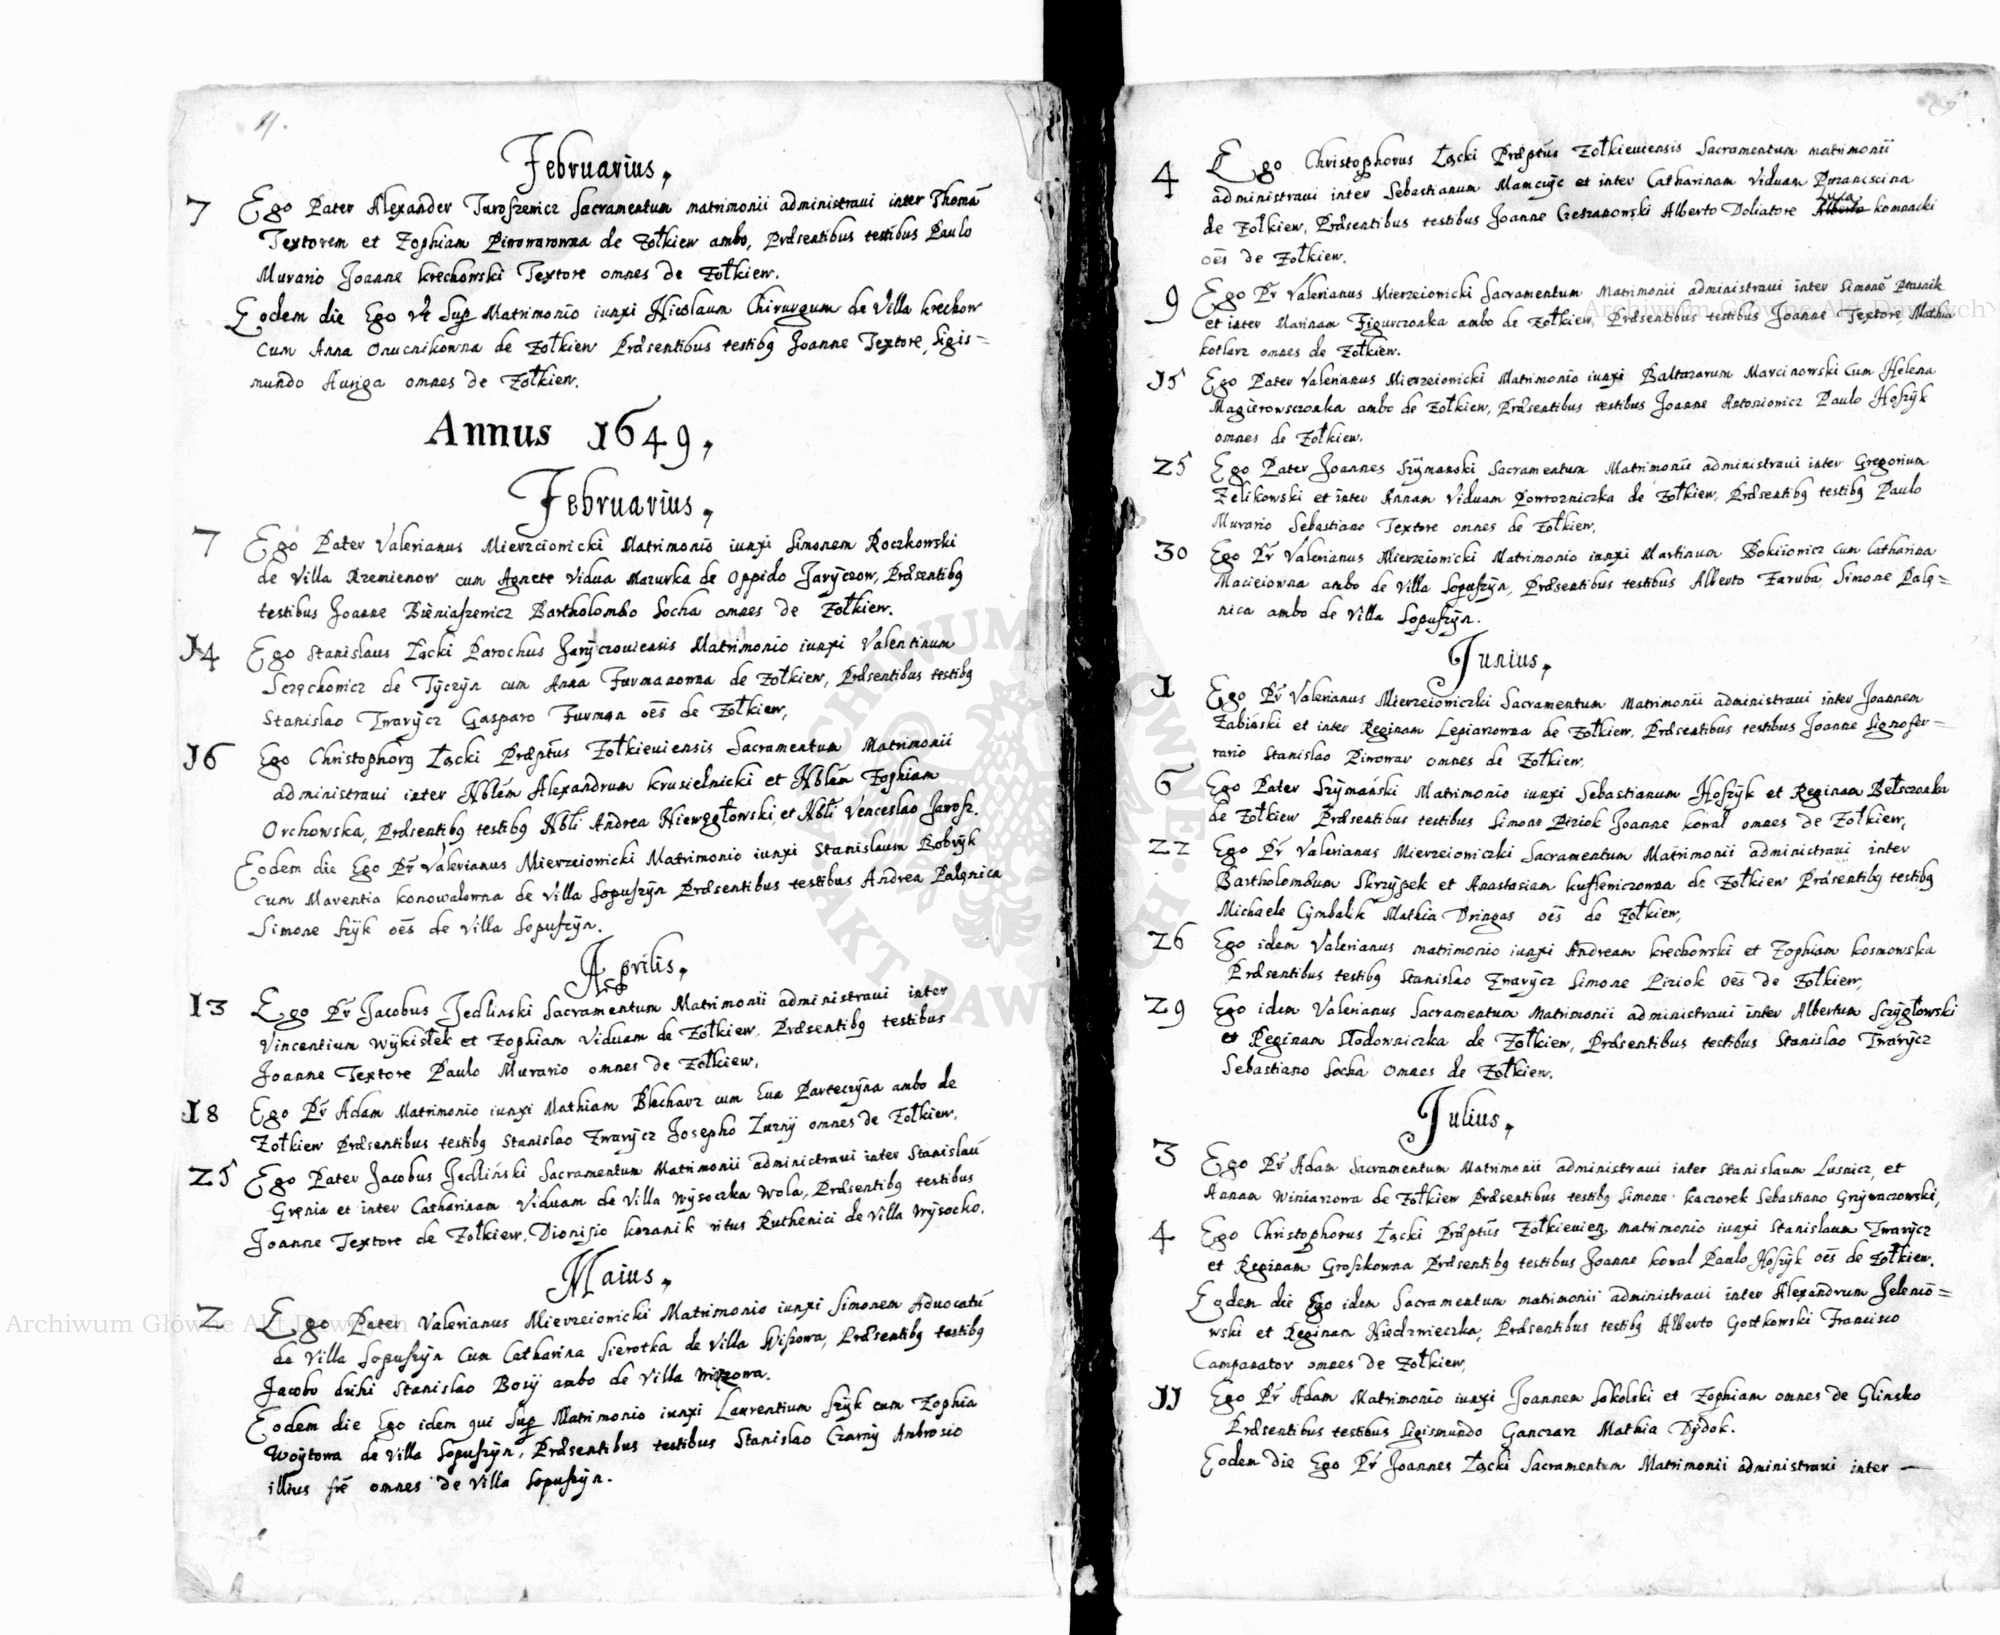 4.
Februarius,
7 Ego Pater Alexander Juroszewicz Sacramentum matrimonii administravi inter Thomā
Textorem et Zophiam Piwowarowna de Żołkiew ambo, Præsentibus testibus Paulo
Murario Joanne Krechowski Textore omnes de Żołkiew.
Eodem die Ego vt Sup Matrimonio iunxi Nicolaum Chirurgum de Villa Krechow
cum Anna Onucnikowna de Żołkiew Præsentibus testibꝫ Joanne Textore, Sigis=
mundo Auriga omnes de Żołkiew.
Annus 1649,
Februarius,
7 Ego Pater Valerianus Mierzeiowicki Matrimonio iunxi Simonem Roczkowski
de Villa Krzemienow cum Agnete Vidua Mazurka de Oppido Jarÿczow, Præsentibꝫ
testibus Joanne Bieniaszewicz Bartholomæo Socha omnes de Żołkiew.
14 Ego Stanislaus Łącki Parochus Jarÿczouiensis Matrimonio iunxi Valentinum
Szczechowicz de Tÿczÿn cum Anna Furmanowna de Żołkiew, Præsentibus testibꝫ
Stanislao Twarÿcz Gasparo Furman oēs de Żołkiew,
16 Ego Christophorꝫ Łącki Præptūs Żołkieuiensis Sacramentum Matrimonii
administraui inter Nblēm Alexandrum Krusielnicki et Nblēm Zophiam
Orchowska, Præsentibꝫ testibꝫ Nbli Andrea Niewęgłowski, et Nbli Venceslao Jarosz.
Eodem die Ego Pr̃ Valerianus Mierzeiowicki Matrimonio iunxi Stanislaum Bobrÿk
cum Maventia Konowalowna de Villa Sopuszÿn Præsentibus testibus Andrea Palęnica
Simone Szÿk oēs de Villa Sopuszÿn.
Aprilis,
13 Ego Pr̃ Jacobus Jedlinski Sacramentum Matrimonii administraui inter
Vincentium Wÿkisłek et Zophiam Viduam de Żołkiew, Præsentibꝫ testibus
Joanne Textore Paulo Murario omnes de Żołkiew,
18 Ego Pr̃ Adam Matrimonio iunxi Mathiam Blacharz cum Eua Parteczÿna ambo de
Żołkiew Præsentibus testibꝫ Stanislao Twarÿcz Josepho Zurnÿ omnes de Żołkiew,
25 Ego Pater Jacobus Jedliński Sacramentum Matrimonii administraui inter Stanislaū
Grenia et inter Catharinam Viduam de Villa Wÿsoczka Wola, Præsentibꝫ testibus
Joanne Textore de Żołkiew, Dionisio Kozanik ritus Ruthenici de Villa Wÿsocko.
Maius,
2 Ego Pater Valerianus Mierzeiowicki Matrimonio iunxi Simonem Aduocatū
de Villa Sopuszÿn Cum Catharina Sierotka de Villa Wiszowa, Præsentibꝫ testibꝫ
Jacobo Luhi Stanislao Bosÿ ambo de Villa Wizowa.
Eodem die Ego idem qui Sup Matrimonio iunxi Laurentium Szÿk cum Zophia
Woÿtowa de Villa Sopuszÿn, Præsentibus testibus Stanislao Czarnÿ Ambrosio
illius frē omnes de Villa Sopuszÿn.
4 Ego Christophorus Łącki Præptūs Żołkieuiensis Sacramentum matrimonii
administraui inter Sebastianum Mamczÿc et inter Catharinam Viduam Puzaniscina
de Żołkiew, Præsentibus testibus Joanne Czeszanowski Alberto Doliatore Alberto Komnacki
oēs de Żołkiew.
9 Ego Pr̃ Valerianus Mierzeiowicki Sacramentum Matrimonii administraui inter Simonē Ptasnik
et inter Marinam Figurczonka ambo de Żołkiew, Præsentibus testibus Joanne Textore, Mathia
Kotlarz omnes de Żołkiew.
15 Ego Pater Valerianus Mierzeiowicki Matrimonio iunxi Baltazarum Marcinowski Cum Helena
Magierowsczonka ambo de Żołkiew, Præsentibus testibus Joanne Antoniowicz Paulo Hoszÿk
omnes de Żołkiew.
25 Ego Pater Joannes Szÿmanski Sacramentum Matrimonii administraui inter Gregorium
Zelikowski et inter Annam Viduam Powrozniczka de Żołkiew, Præsentibꝫ testibꝫ Paulo
Murario Sebastiano Textore omnes de Żołkiew,
30 Ego Pr̃ Valerianus Mierzeiowicki Matrimonio iunxi Martinum Bokiiowicz Cum Catharina
Macieiowna ambo de Villa Sopuszÿn, Præsentibus testibus Alberto Zaruba, Simone Palę=
nica ambo de Villa Sopuszÿn.
Junius,
1 Ego Pr̃ Valerianus Mierzeiowiczki Sacramentum Matrimonii administraui inter Joannem
Zabiński et inter Reginam Lepiarzowna de Żołkiew, Præsentibus testibus Joanne Signofer=
rario Stanislao Piwowar omnes de Żołkiew,
6 Ego Pater Szÿmański Matrimonio iunxi Sebastianum Hoszÿk et Reginam Bełsczonka
de Żołkiew Præsentibus testibus Simone Piziok Joanne Kowal omnes de Żołkiew,
22 Ego Pr̃ Valerianus Mierzeiowiczki Sacramentum Matrimonii administraui inter
Bartholomæum Skrzÿpek et Anastasiam Kusseniczowna de Żołkiew Præsentibꝫ testibꝫ
Michaele Cÿmbalik Mathia Dringas oēs de Żołkiew,
26 Ego idem Valerianus matrimonio iunxi Andream Krechowski et Zophiam Kosmowska
Præsentibus testibꝫ Stanislao Twarÿcz Simone Piziok oēs de Żołkiew,
29 Ego idem Valerianus Sacramentum Matrimonii administraui inter Albertum Sczÿgłowski
et Reginam Słodowniczka de Żołkiew, Præsentibus testibus Stanislao Twarÿcz
Sebastiano Socha Omnes de Żołkiew.
Julius,
3 Ego Pr̃ Adam Sacramentum Matrimonii administraui inter Stanislaum Lusnicz, et
Annam Winiarzowa de Żołkiew Præsentibus testibꝫ Simone Kaczorek Sebastiano Grzÿwaczowski,
4 Ego Christophorus Łącki Præptūs Żołkieuień, matrimonio iunxi Stanislaum Twarÿcz
et Reginam Groszkowna Præsentibꝫ testibus Joanne Kowal Paulo Hoszÿk oēs de Żołkiew.
Eodem die Ego idem Sacramentum matrimonii administraui inter Alexandrum Jelenio=
wski et Reginam Niedzwieczka, Præsentibus testibꝫ Alberto Gostkowski Francisco
Campanator omnes de Żołkiew,
11 Ego Pr̃ Adam Matrimonio iunxi Joannem Sokolski et Zophiam omnes de Glinsko
Præsentibus testibus Sigismundo Ganczarz Mathia Dÿdok.
Eodem die Ego Pr̃ Joannes Łącki Sacramentum Matrimonii administraui inter —
Archiwum Główne Akt Dawnych
Archiwum Główne Akt Dawnych
ARCHIWUM GŁÓWNE AKT DAWNYCH